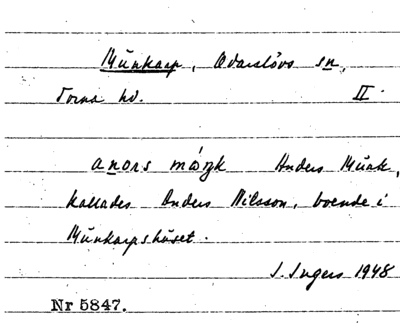 Munkarp, Odarslövs sn,
Torna hd. II.
anərs múŋk Anders Munk,
kallades Anders Nilsson, boende i
Munkarpshuset.
I. Ingers 1948
Nr 5847.